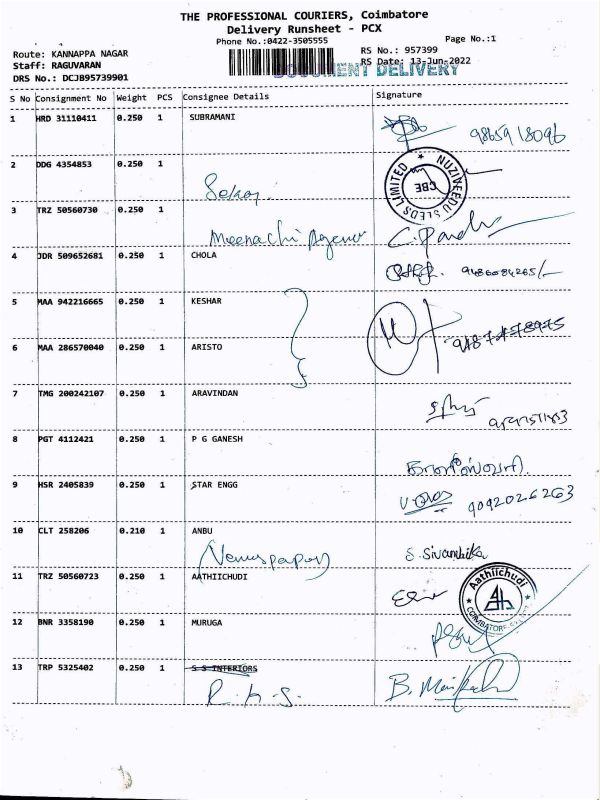 THE PROFESSIONAL COURIERS, Coimbatore
Delivery Runsheet - PCX
Phone No.:0422-3505555
Page No.:1
Route: KANNAPPA NAGAR
RS No.: 957399
Staff: RAGUVARAN
RS Date: 13-Jun-2022
DOCUMENT DELIVERY
DRS No.: DCJB95739901
S No Consignment No Weight PCS Consignee Details Signature
1 HRD 31110411 0.250 1 SUBRAMANI
2 DDG 4354853 0.250 1
NUZIVEEDU SEEDS LIMITED
CBE
3 TRZ 50560730 0.250 1
Meenachi Agency
4 JDR 509652681 0.250 1 CHOLA
5 MAA 942216665 0.250 1 KESHAR
6 MAA 286570040 0.250 1 ARISTO
7 TMG 200242107 0.250 1 ARAVINDAN
8 PGT 4112421 0.250 1 P G GANESH
9 HSR 2405839 0.250 1 STAR ENGG
9092026263
10 CLT 258206 0.210 1 ANBU
S. Sivambika
11 TRZ 50560723 0.250 1 AATHIICHUDI
Aathiichudi
COIMBATORE
12 BNR 3358190 0.250 1 MURUGA
13 TRP 5325402 0.250 1 S S INTERIORS
R. K. S.